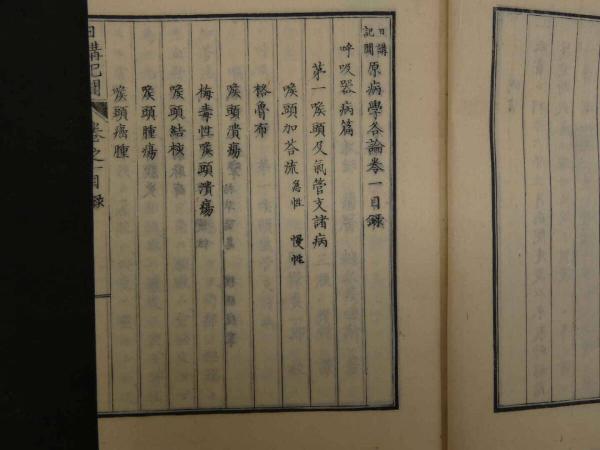 日講記聞 原病學各論卷一目錄
呼吸器病篇
第一喉頭及氣管支諸病
喉頭加荅流 急性 慢性
格魯布
喉頭潰瘍
梅毒性喉頭潰瘍
喉頭結核
喉頭腫瘍
喉頭癌腫
日講記聞 卷之一目錄